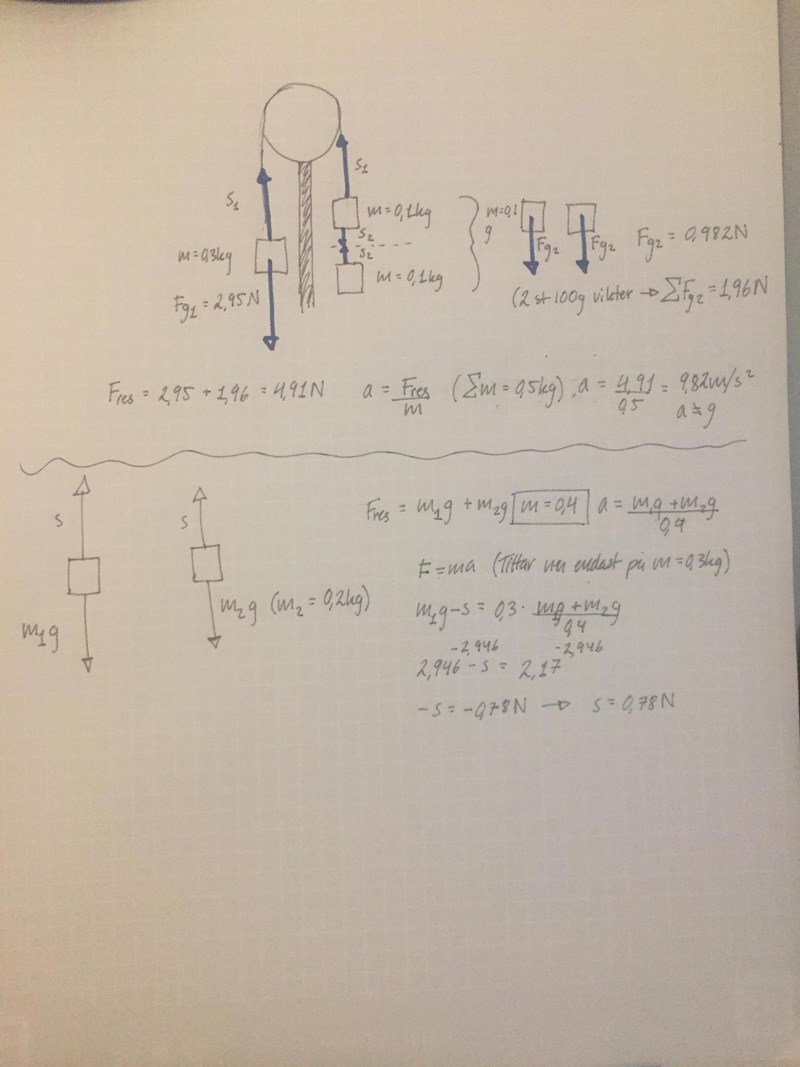 S₁
S₁
m=0,1kg
S₂
S₂
m=0,3kg
m=0,1kg
Fg₁ = 2,95N
m=0,1
g
Fg₂
Fg₂
Fg₂ = 0,982N
(2 st 100g vikter → ΣFg₂ = 1,96N
Fres = 2,95 + 1,96 = 4,91N a = Fres/m (Σm = 0,5kg), a = 4,91/0,5 = 9,82m/s²
a ≒ g
S
S
m₁g
m₂g (m₂ = 0,2kg)
Fres = m₁g + m₂g m=0,4 a = m₁g + m₂g/0,4
F=ma (Tittar nu endast på m=0,3kg)
m₁g-s = 0,3 · mg + m₂g/0,4
-2,946 -2,946
2,946 - s = 2,17
-s = -0,78N → s = 0,78N